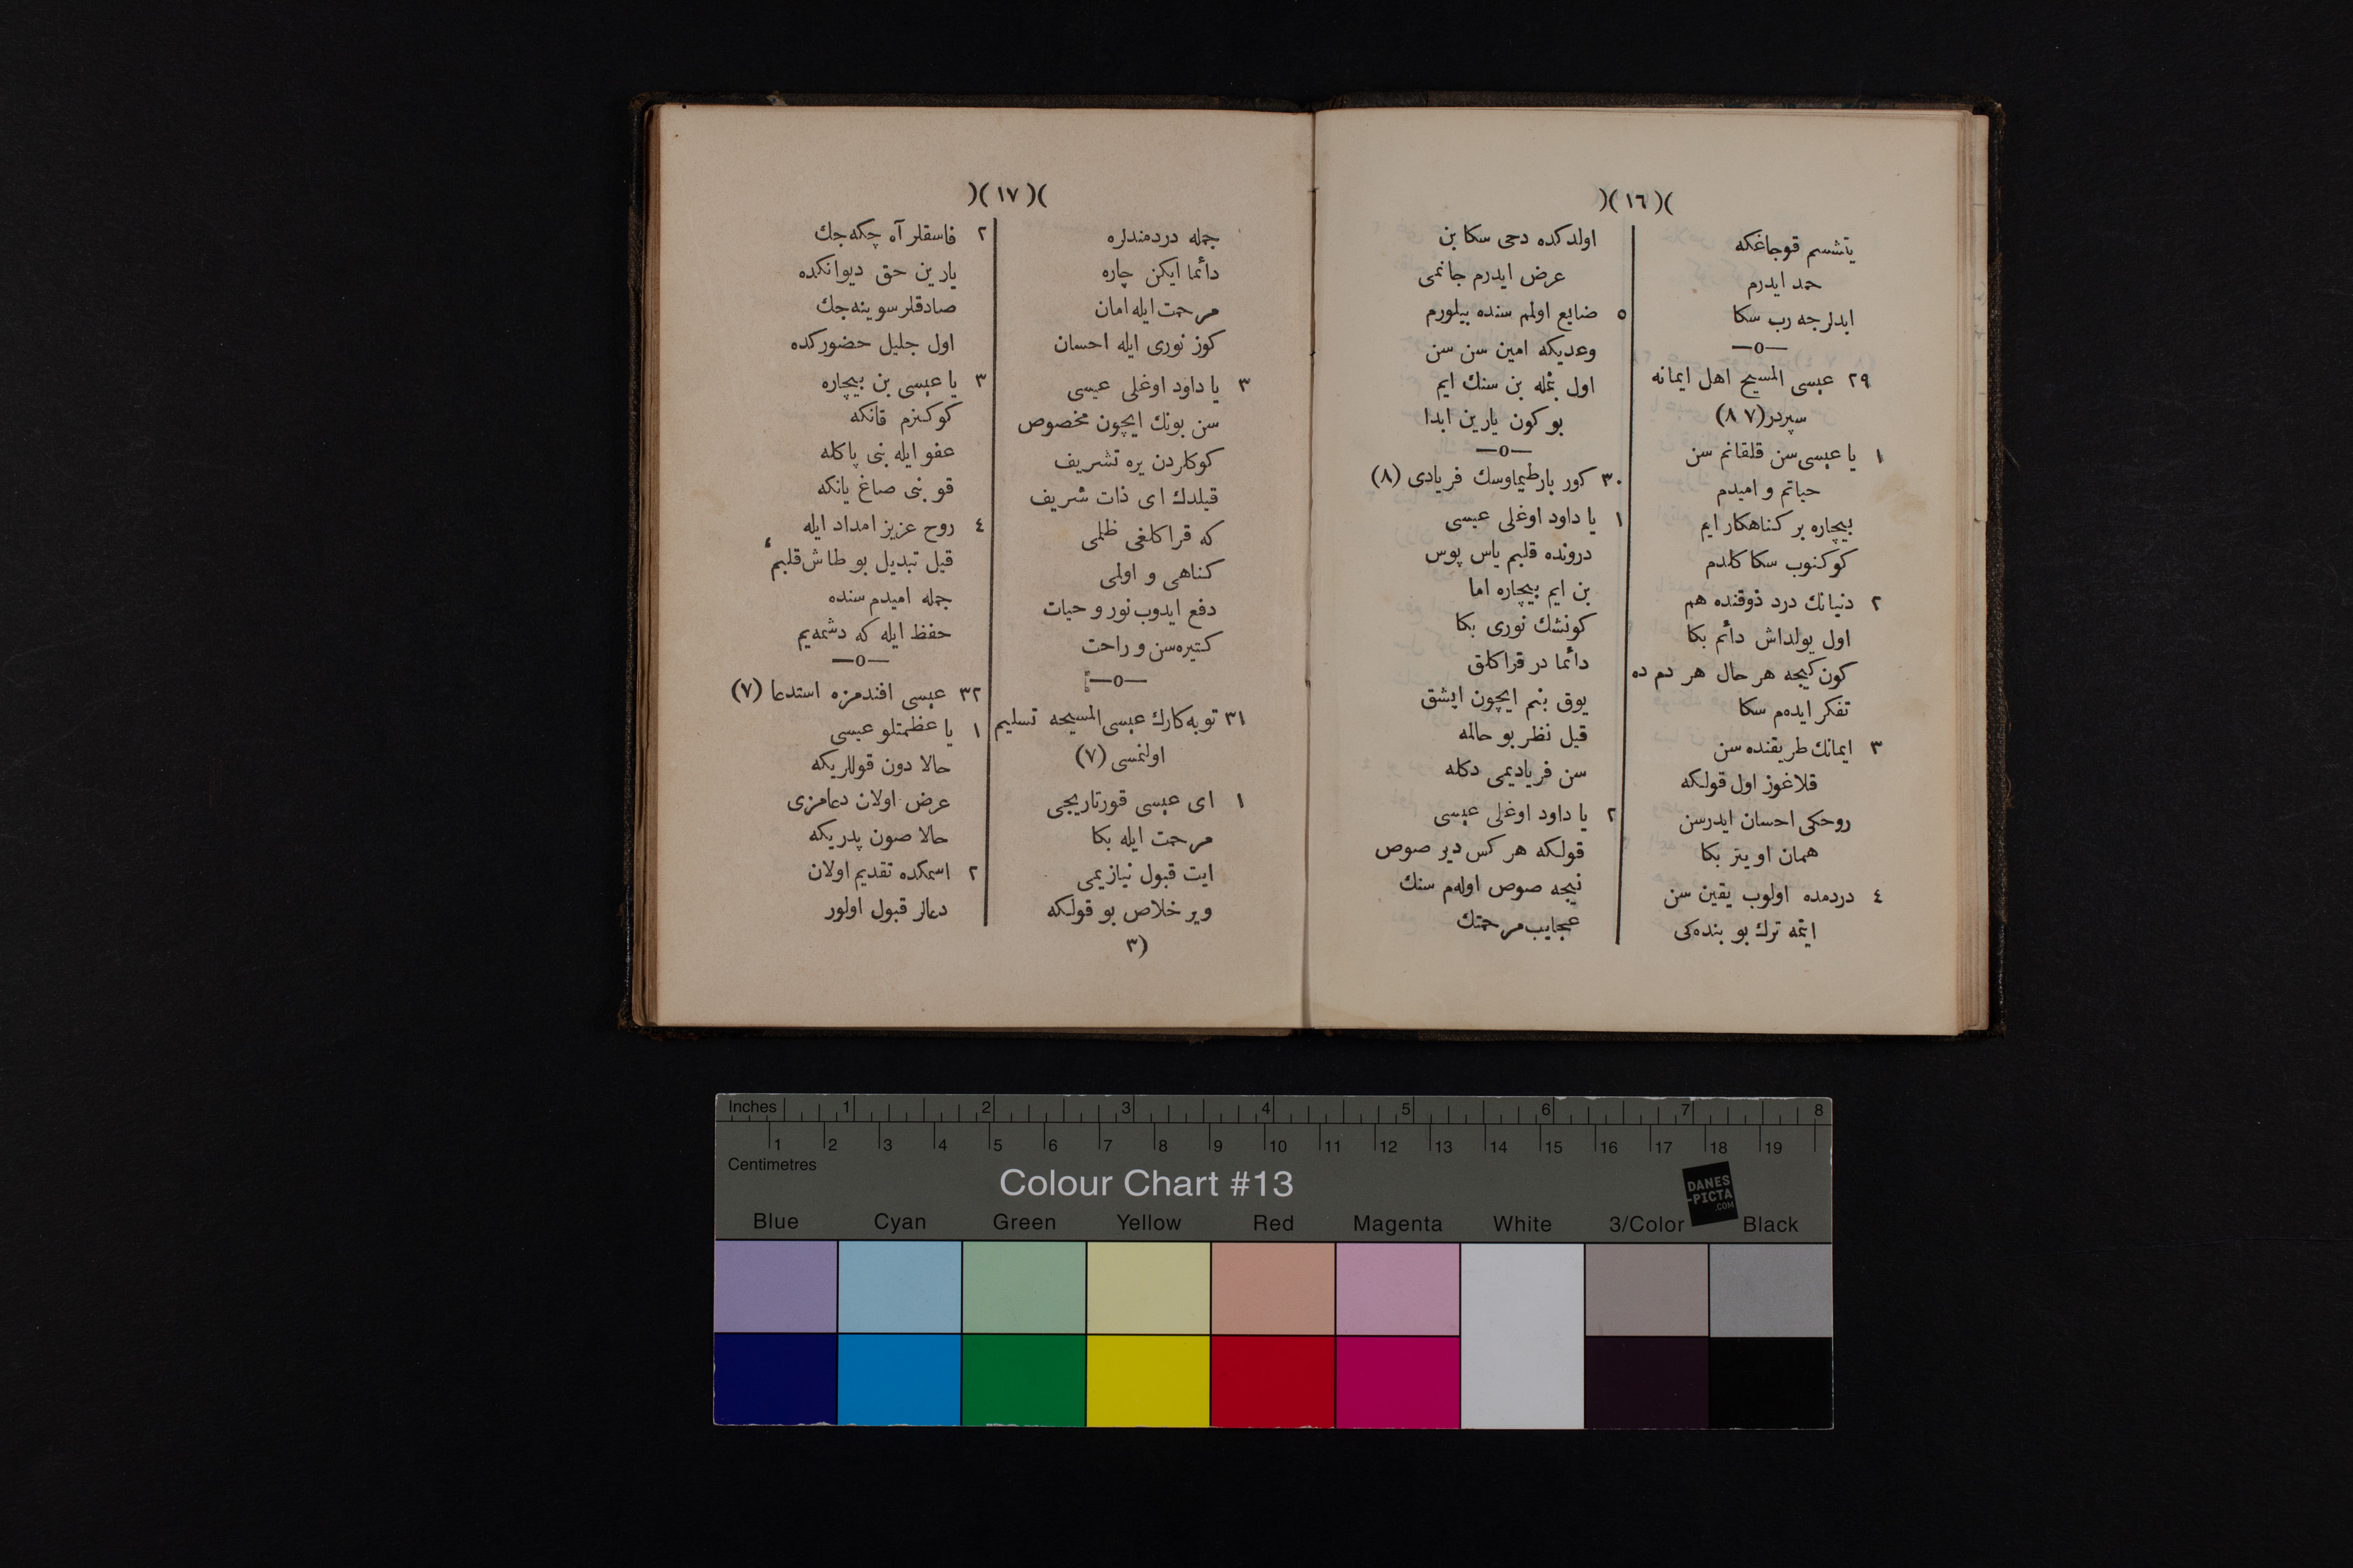 )( ١٦ )(
يتشسم قوجاغكه
حمد ايدرم
ابدلرجه رب سكا
—o—
٢٩ عيسى المسيح اهل ايمانه
سپردر (٨ ٧)
١ يا عيسى سن قلقانم سن
حياتم و اميدم
بيچاره بر كناهكار ايم
كوكنوب سكا كلدم
٢ دنيانك درد ذوقنده هم
اول يولداش دائم بكا
كون كيجه هر حال هر دم ده
تفكر ايدەم سكا
٣ ايمانك طريقنده سن
قلاغوز اول قولكه
روحكى احسان ايدرسن
همان او يتر بكا
٤ دردمده اولوب يقين سن
ايتمه ترك بو بندەكى
اولدكده دخى سكا بن
عرض ايدرم جانمى
٥ ضايع اولمم سنده بيلورم
وعديكه امين سن سن
اول بنمله بن سنك ايم
بو كون يارين ابدا
—o—
٣٠ كور بارطيماوسك فريادى (٨)
١ يا داود اوغلى عيسى
درونده قلبم ياس پوس
بن ايم بيچاره اما
كونشك نورى بكا
دائما در قراكلق
يوق بنم ايچون ايشق
قيل نظر بو حالمه
سن فرياديمى دكله
٢ يا داود اوغلى عيسى
قولكه هر كس دير صوص
نيجه صوص اولەم سنك
عجايب مرحمتك
)( ١٧ )(
جمله دردمندلره
دائما ايكن چاره
مرحمت ايله امان
كوز نورى ايله احسان
٣ يا داود اوغلى عيسى
سن بونك ايچون مخصوص
كوكلردن يره تشريف
قيلدك اى ذات شريف
كه قراكلغى ظلمى
كناهى و اولمى
دفع ايدوب نور و حيات
كتيرەسن و راحت
—o—
٣١ توبەكارك عيسى المسيحه تسليم
اولنمسى (٧)
١ اى عيسى قورتاريجى
مرحمت ايله بكا
ايت قبول نيازيمى
وير خلاص بو قولكه
(٣
٢ فاسقلر آه چكەجك
يارين حق ديوانكده
صادقلر سوينەجك
اول جليل حضوركده
٣ يا عيسى بن بيچاره
كوكنرم قانكه
عفو ايله بنى پاكله
قو بنى صاغ يانكه
٤ روح عزيز امداد ايله
قيل تبديل بو طاش قلبم
جمله اميدم سنده
حفظ ايله كه دشمەيم
—o—
٣٢ عيسى افندمزه استدعا (٧)
١ يا عظمتلو عيسى
حالا دون قوللريكه
عرض اولان دعامزى
حالا صون پدريكه
٢ اسمكده تقديم اولان
دعالر قبول اولور
Inches 1 2 3 4 5 6 7 8
1 2 3 4 5 6 7 8 9 10 11 12 13 14 15 16 17 18 19
Centimetres
Colour Chart #13
DANES
-PICTA
.COM
Blue Cyan Green Yellow Red Magenta White 3/Color Black